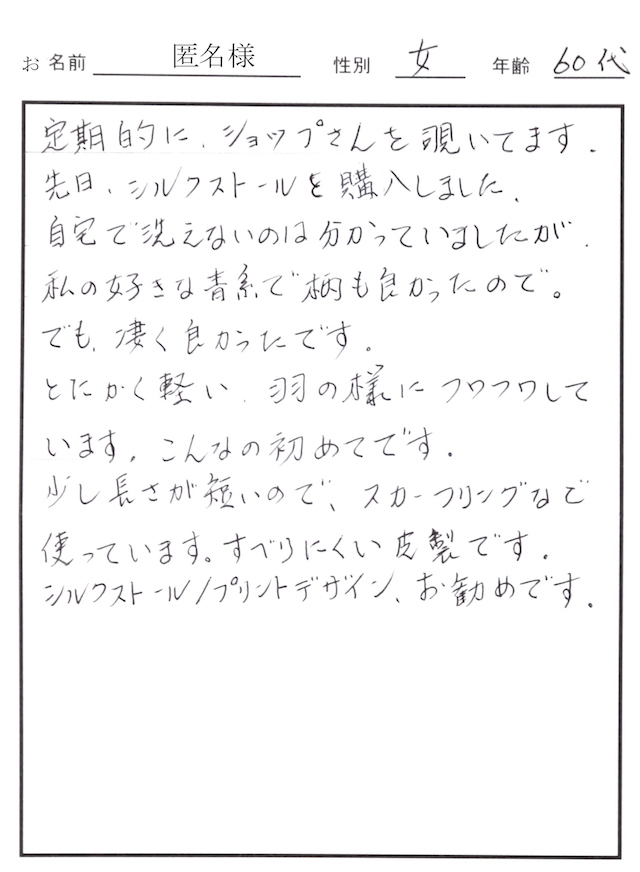 お名前 匿名様 性別 女 年齢 60代
定期的に、ショップさんを覗いてます。
先日、シルクストールを購入しました。
自宅で洗えないのは分かっていましたが、
私の好きな青系で柄も良かったので。
でも、凄く良かったです。
とにかく軽い、羽の様にフワフワして
います。こんなの初めてです。
少し長さが短いので、スカーフリングなど
使っています。すべりにくい皮製です。
シルクストール/プリントデザイン、お勧めです。